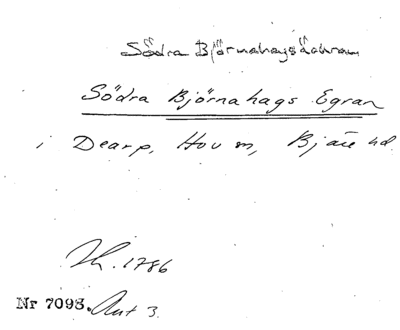 Södra Björnahagsåahran
Södra Björnahags Egran
i Dearp, Hov sn, Bjäre hd.
Lh. 1786
Nr 7098. Avt 3.